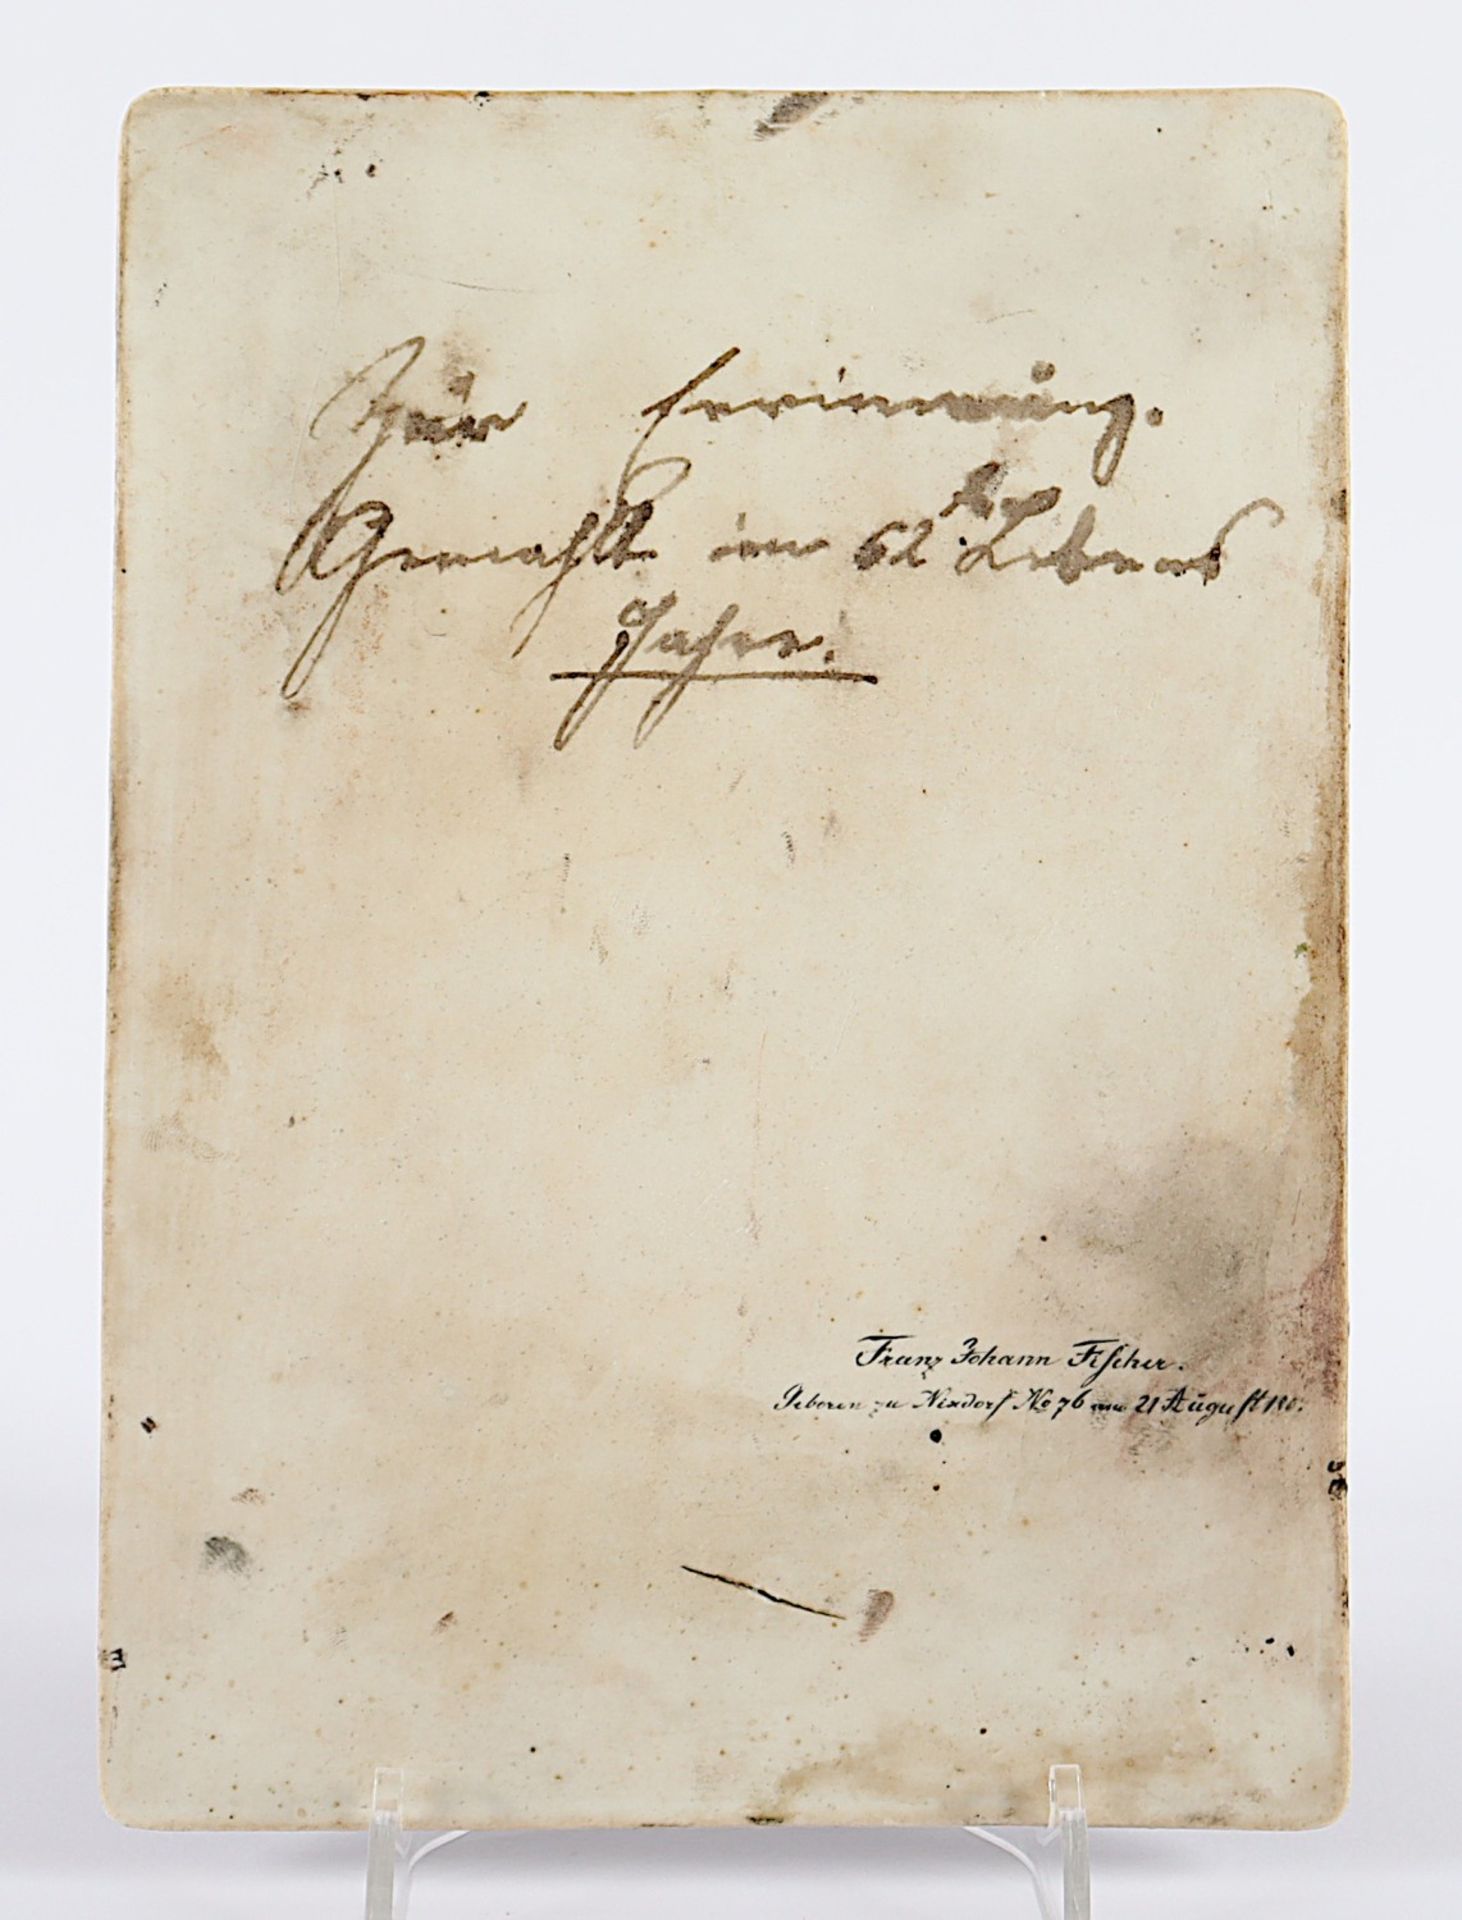 Zur Erinnerung.
Gemahlt im 62 Lebens
Jahre.
Franz Johann Fischer.
Geboren zu Nixdorf No 76 am 21 August